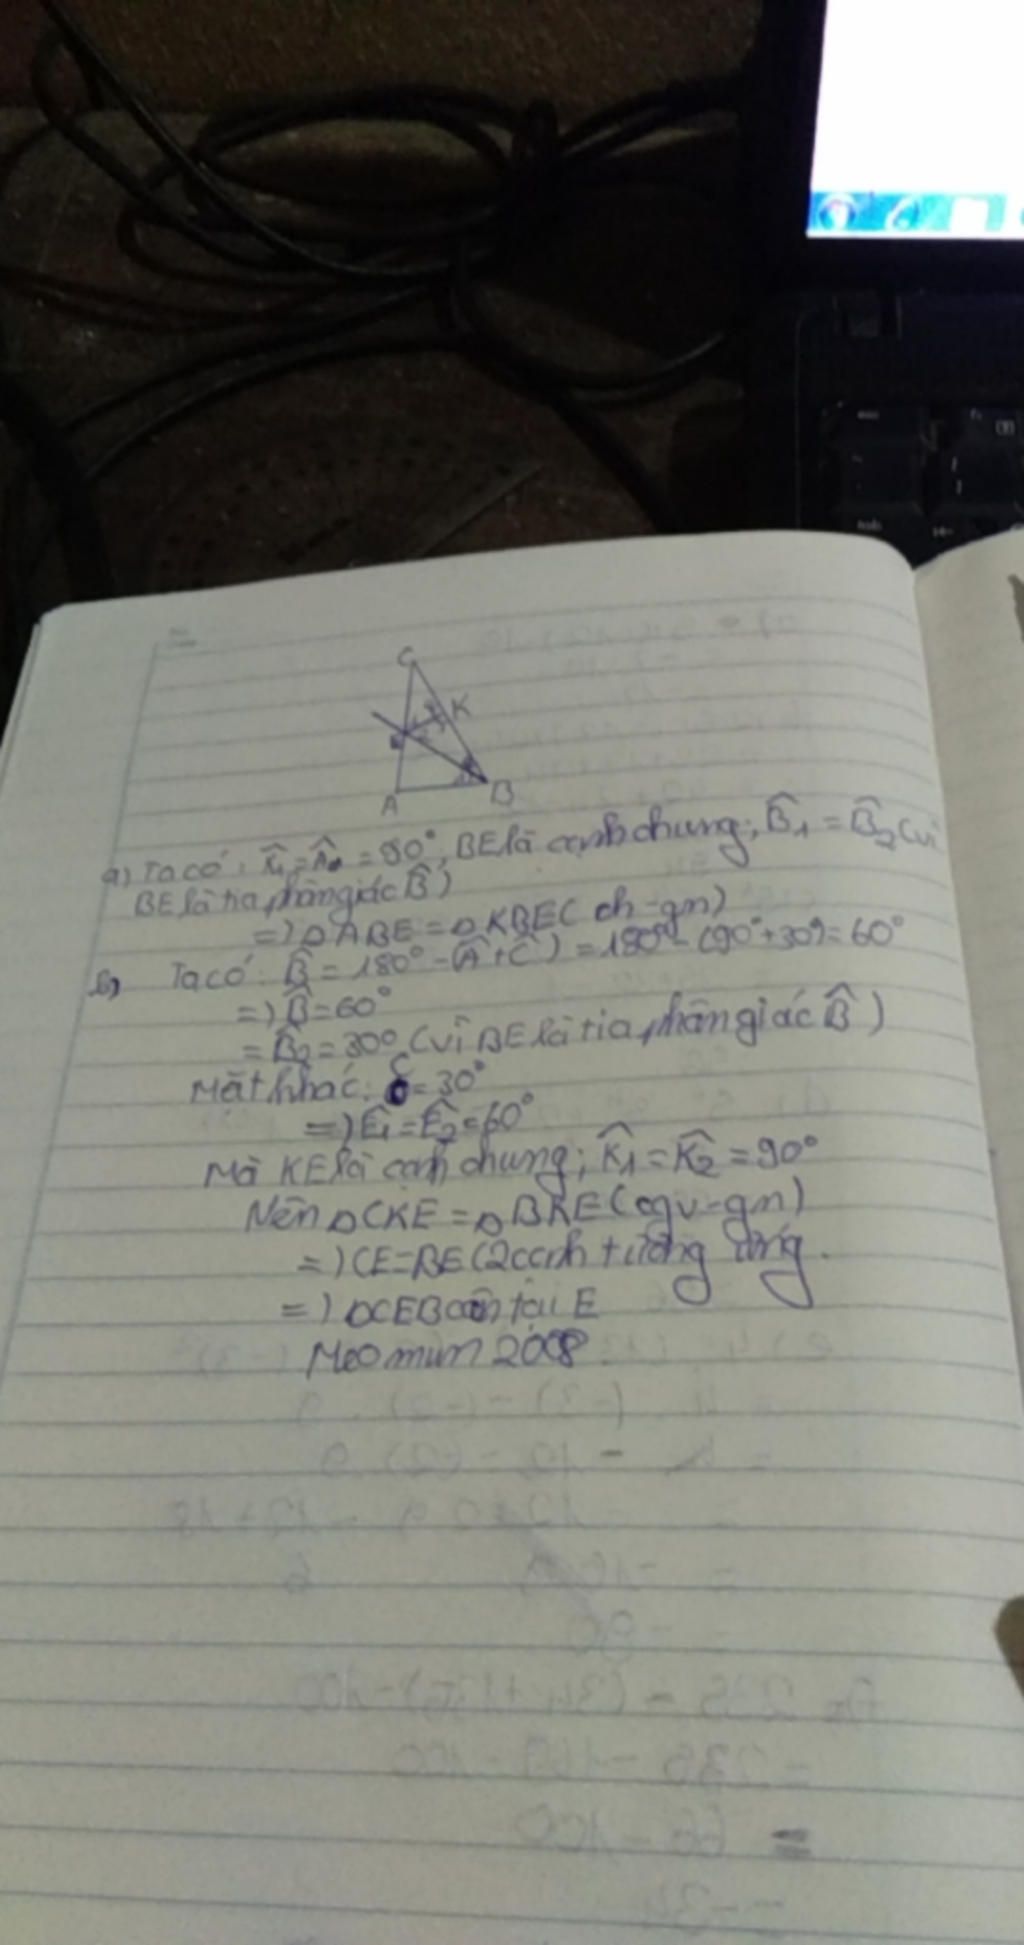 C
K
E
A
B
a) Ta có: K̂₁ = Â = 90°, BE là cạnh chung; B̂₁ = B̂₂ (vì
BE là tia phân giác B̂)
=) △ABE = △KBE (ch-gn)
b) Ta có: B̂ = 180° - (Â + Ĉ) = 180° - (90° + 30°) = 60°
=) B̂ = 60°
= B̂₂ = 30° (vì BE là tia phân giác B̂)
Mặt khác: Ĉ = 30°
=) Ê₁ = Ê₂ = 60°
Mà KE là cạnh chung; K̂₁ = K̂₂ = 90°
Nên △CKE = △BKE (cgv-gn)
=) CE = BE (2 cạnh tương ứng.
=) △CEB cân tại E
Meo mun 2008